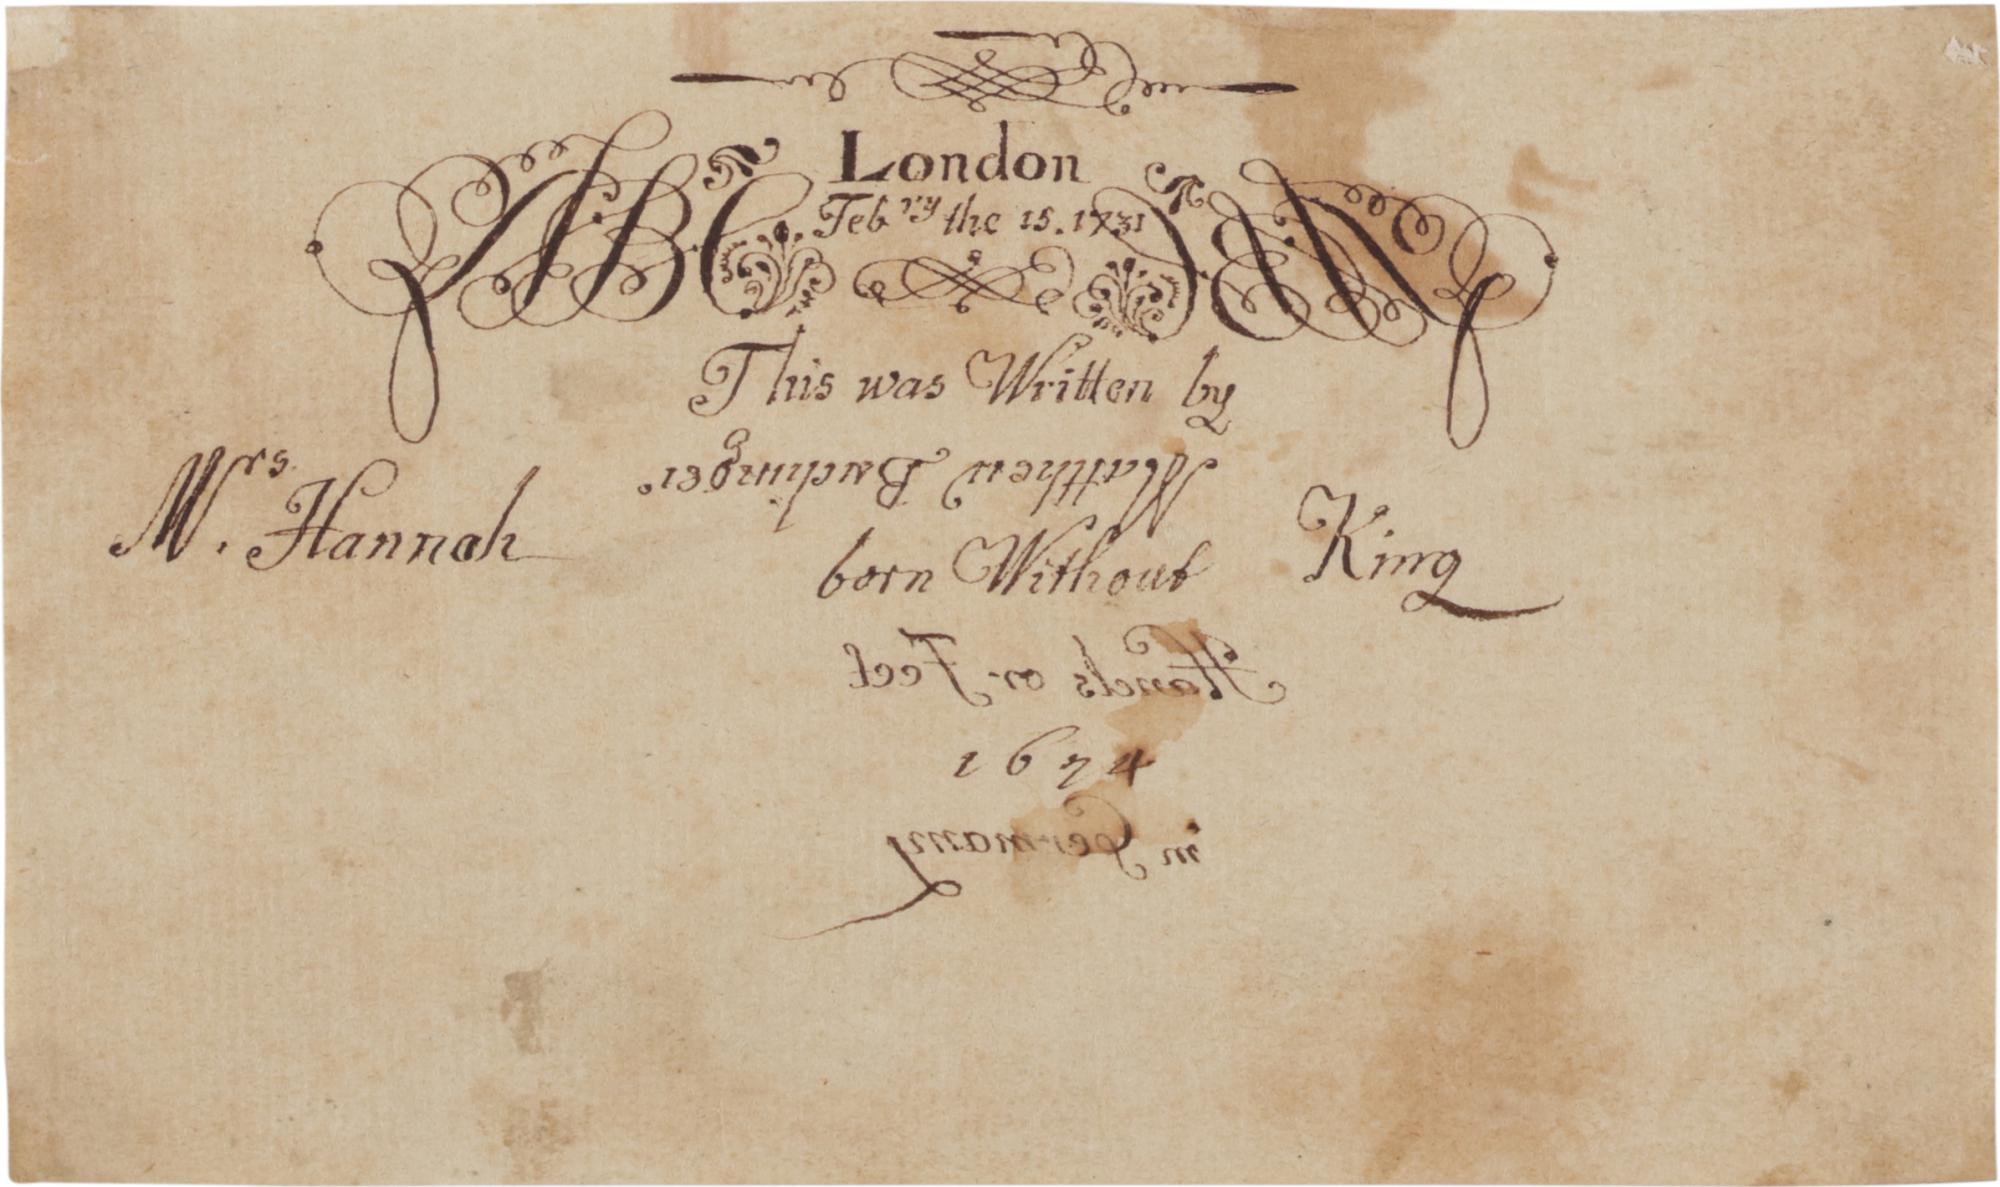 London
ABC
Feb ry the 15. 1731
This was Written by
Matthew Buchinger.
Mrs. Hannah King
born Without
Hands or Feet
1674
in Germany